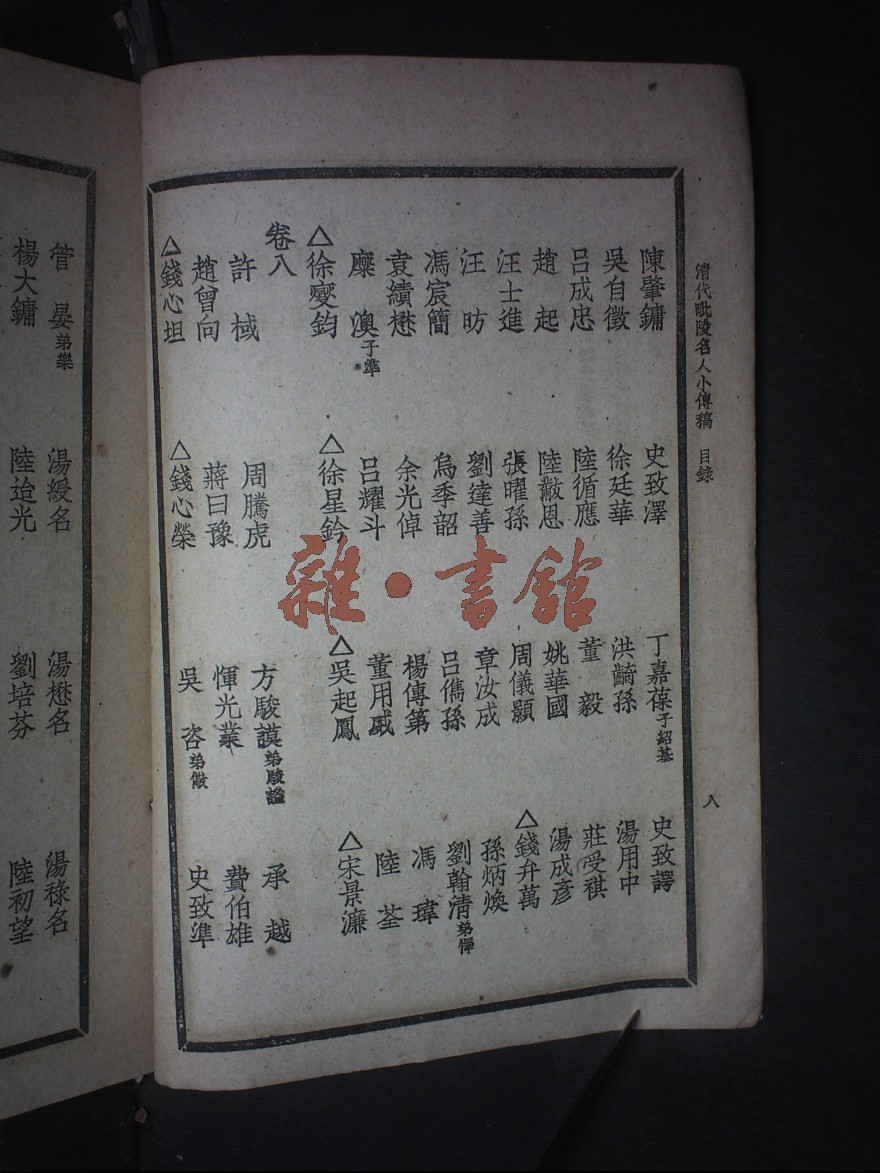 清代毗陵名人小傳稿 目錄 八
陳肇鏞 史致澤 丁嘉葆子紹基 史致諤
吳自徵 徐廷華 洪齮孫 湯用中
呂成忠 陸循應 董毅 莊受祺
趙起 陸黻恩 姚華國 湯成彥
汪士進 張曜孫 周儀顥 △錢弁萬
汪昉 劉達善 章汝成 孫炳煥
馮宸簡 烏季韶 呂儁孫 劉翰清弟懌
袁績懋 余光倬 楊傳第 馮瑋
糜澳子準 呂耀斗 董用威 陸荃
△徐燮鈞 △徐星鈐 △吳起鳳 △宋景濂
卷八
許棫 周騰虎 方駿謨弟駿謐 承越
趙曾向 蔣曰豫 惲光業 費伯雄
△錢心坦 △錢心榮 吳咨弟儆 史致準
管晏弟樂 湯綬名 湯懋名 湯祿名
楊大鏞 陸迨光 劉培芬 陸初望
雜·書館